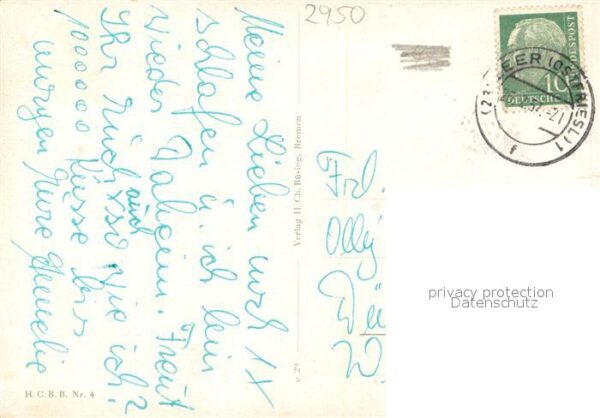 2950
Meine Lieben noch 1x
schlafen u. ich bin
wieder Daheim. Freut
Ihr Euch auch so wie ich?
100000 Küsse bis
morgen Eure
Verlag H. Ch. Büsing, Bremen
c 29
H. C. B. B. Nr. 4
DEUTSCHE BUNDESPOST
10
LEER (OSTFRIESL) 1
f
Frl.
Olly
W.
privacy protection
Datenschutz